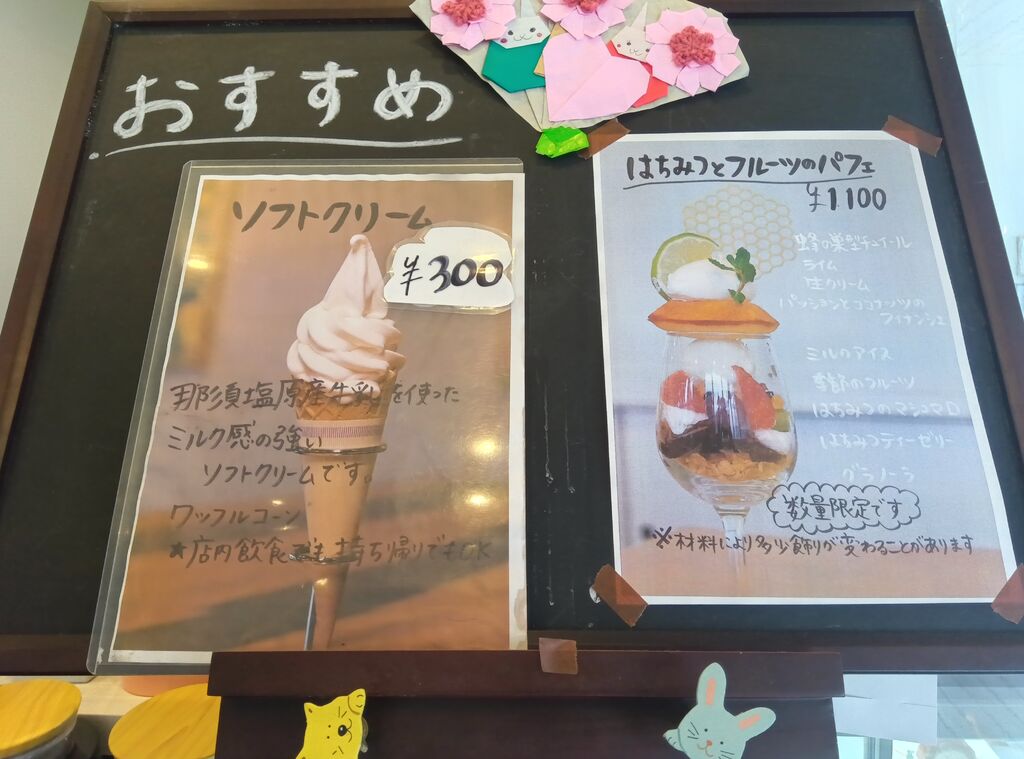 おすすめ
ソフトクリーム
¥300
那須塩原産牛乳を使った
ミルク感の強い
ソフトクリームです。
ワッフルコーン
★店内飲食でも持ち帰りでもOK
はちみつとフルーツのパフェ
¥1100
蜂の巣型チュイール
ライム
生クリーム
パッションとココナッツの
フィナンシェ
ミルのアイス
季節のフルーツ
はちみつのマシュマロ
はちみつティーゼリー
グラノーラ
数量限定です
※材料により多少飾りが変わることがあります